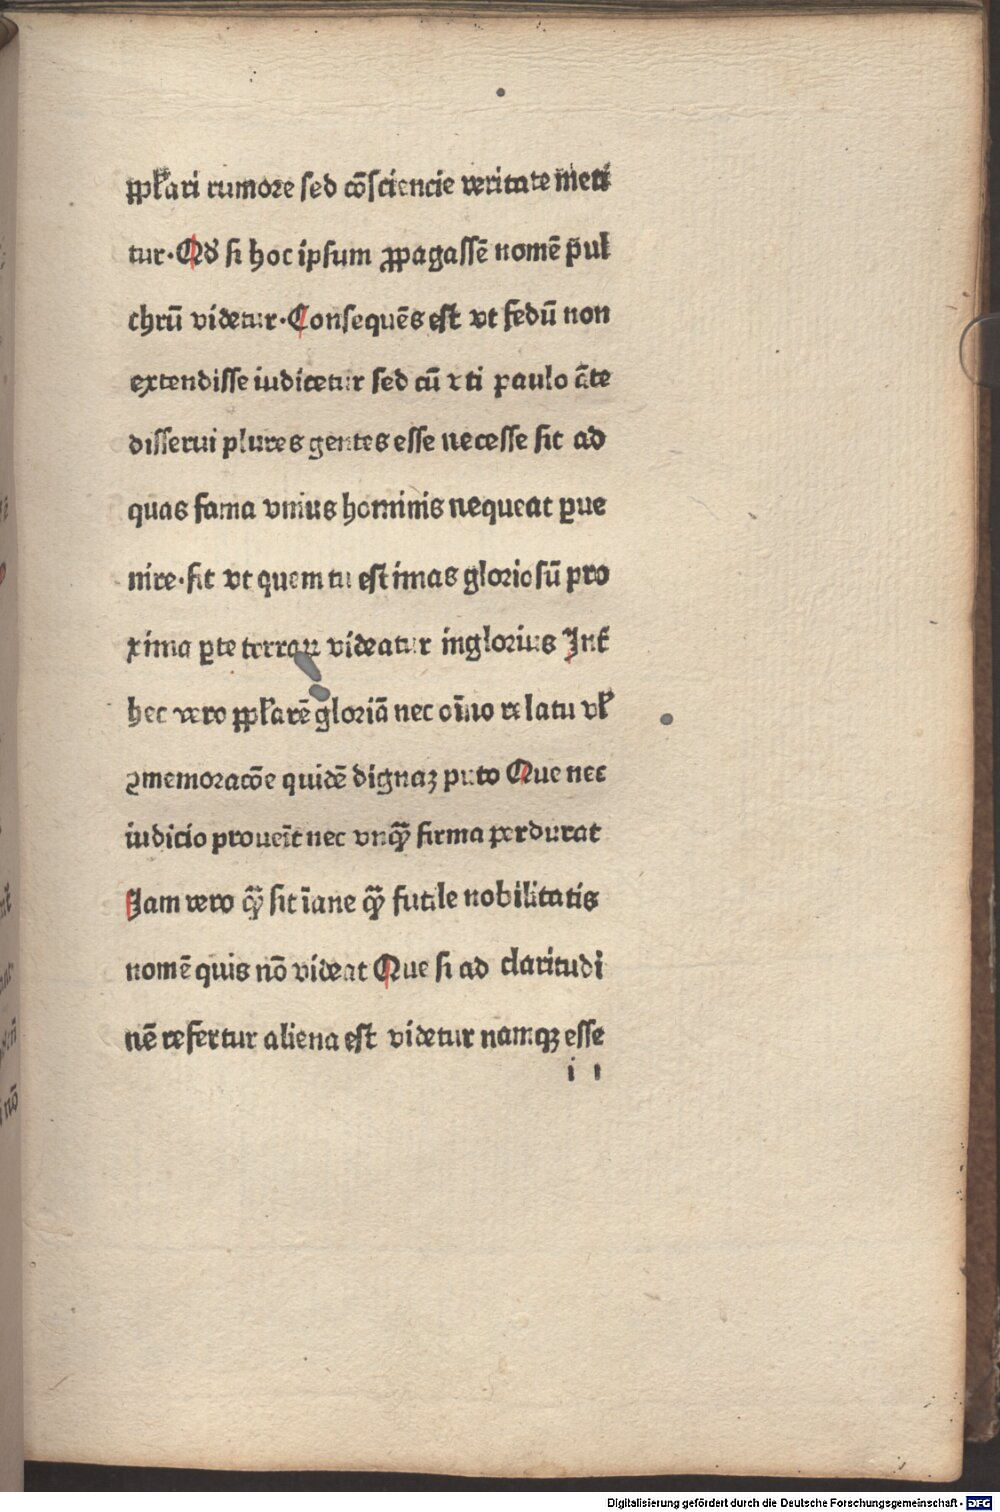 ꝓpƚari rumore sed cōsciencie veritate meti
tur· Qð si hoc ipsum ꝓpagassē nomē p̄ul
chrū videtur· Consequēs est vt fedū non
extendisse iudicetur sed cū vti paulo āte
disserui plures gentes esse necesse sit ad
quas fama vnius hominis nequeat ꝑue
nire· fit vt quem tu estimas gloriosū pro
xima ꝑte terraꝝ videatur inglorius Int̄
hec vero pƚarē gloriā nec oīno relatu vƚ
ꝯmemoracōe quidē dignaꝫ puto Que nec
iudicio proueīt nec vnqꝫ̄ firma perdurat
Jam vero qꝫ̄ sit īane qꝫ̄ futile nobilitatis
nomē quis nō videat Que si ad claritudi
nē refertur aliena est videtur namqꝫ esse
i i
Digitalisierung gefördert durch die Deutsche Forschungsgemeinschaft - DFG